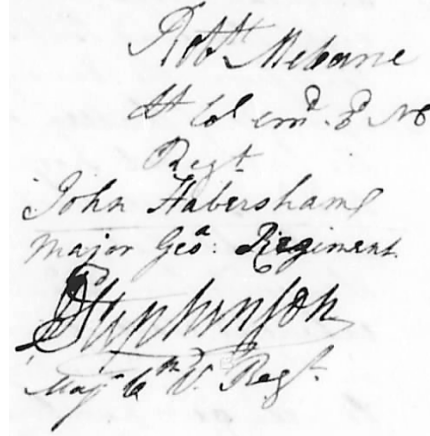 Robt. Mebane
Lt Col. cmd. 3d No
Regt.
John Habersham
Major Geo: Regiment
Stephenson
Majr. 6th V. Regt.